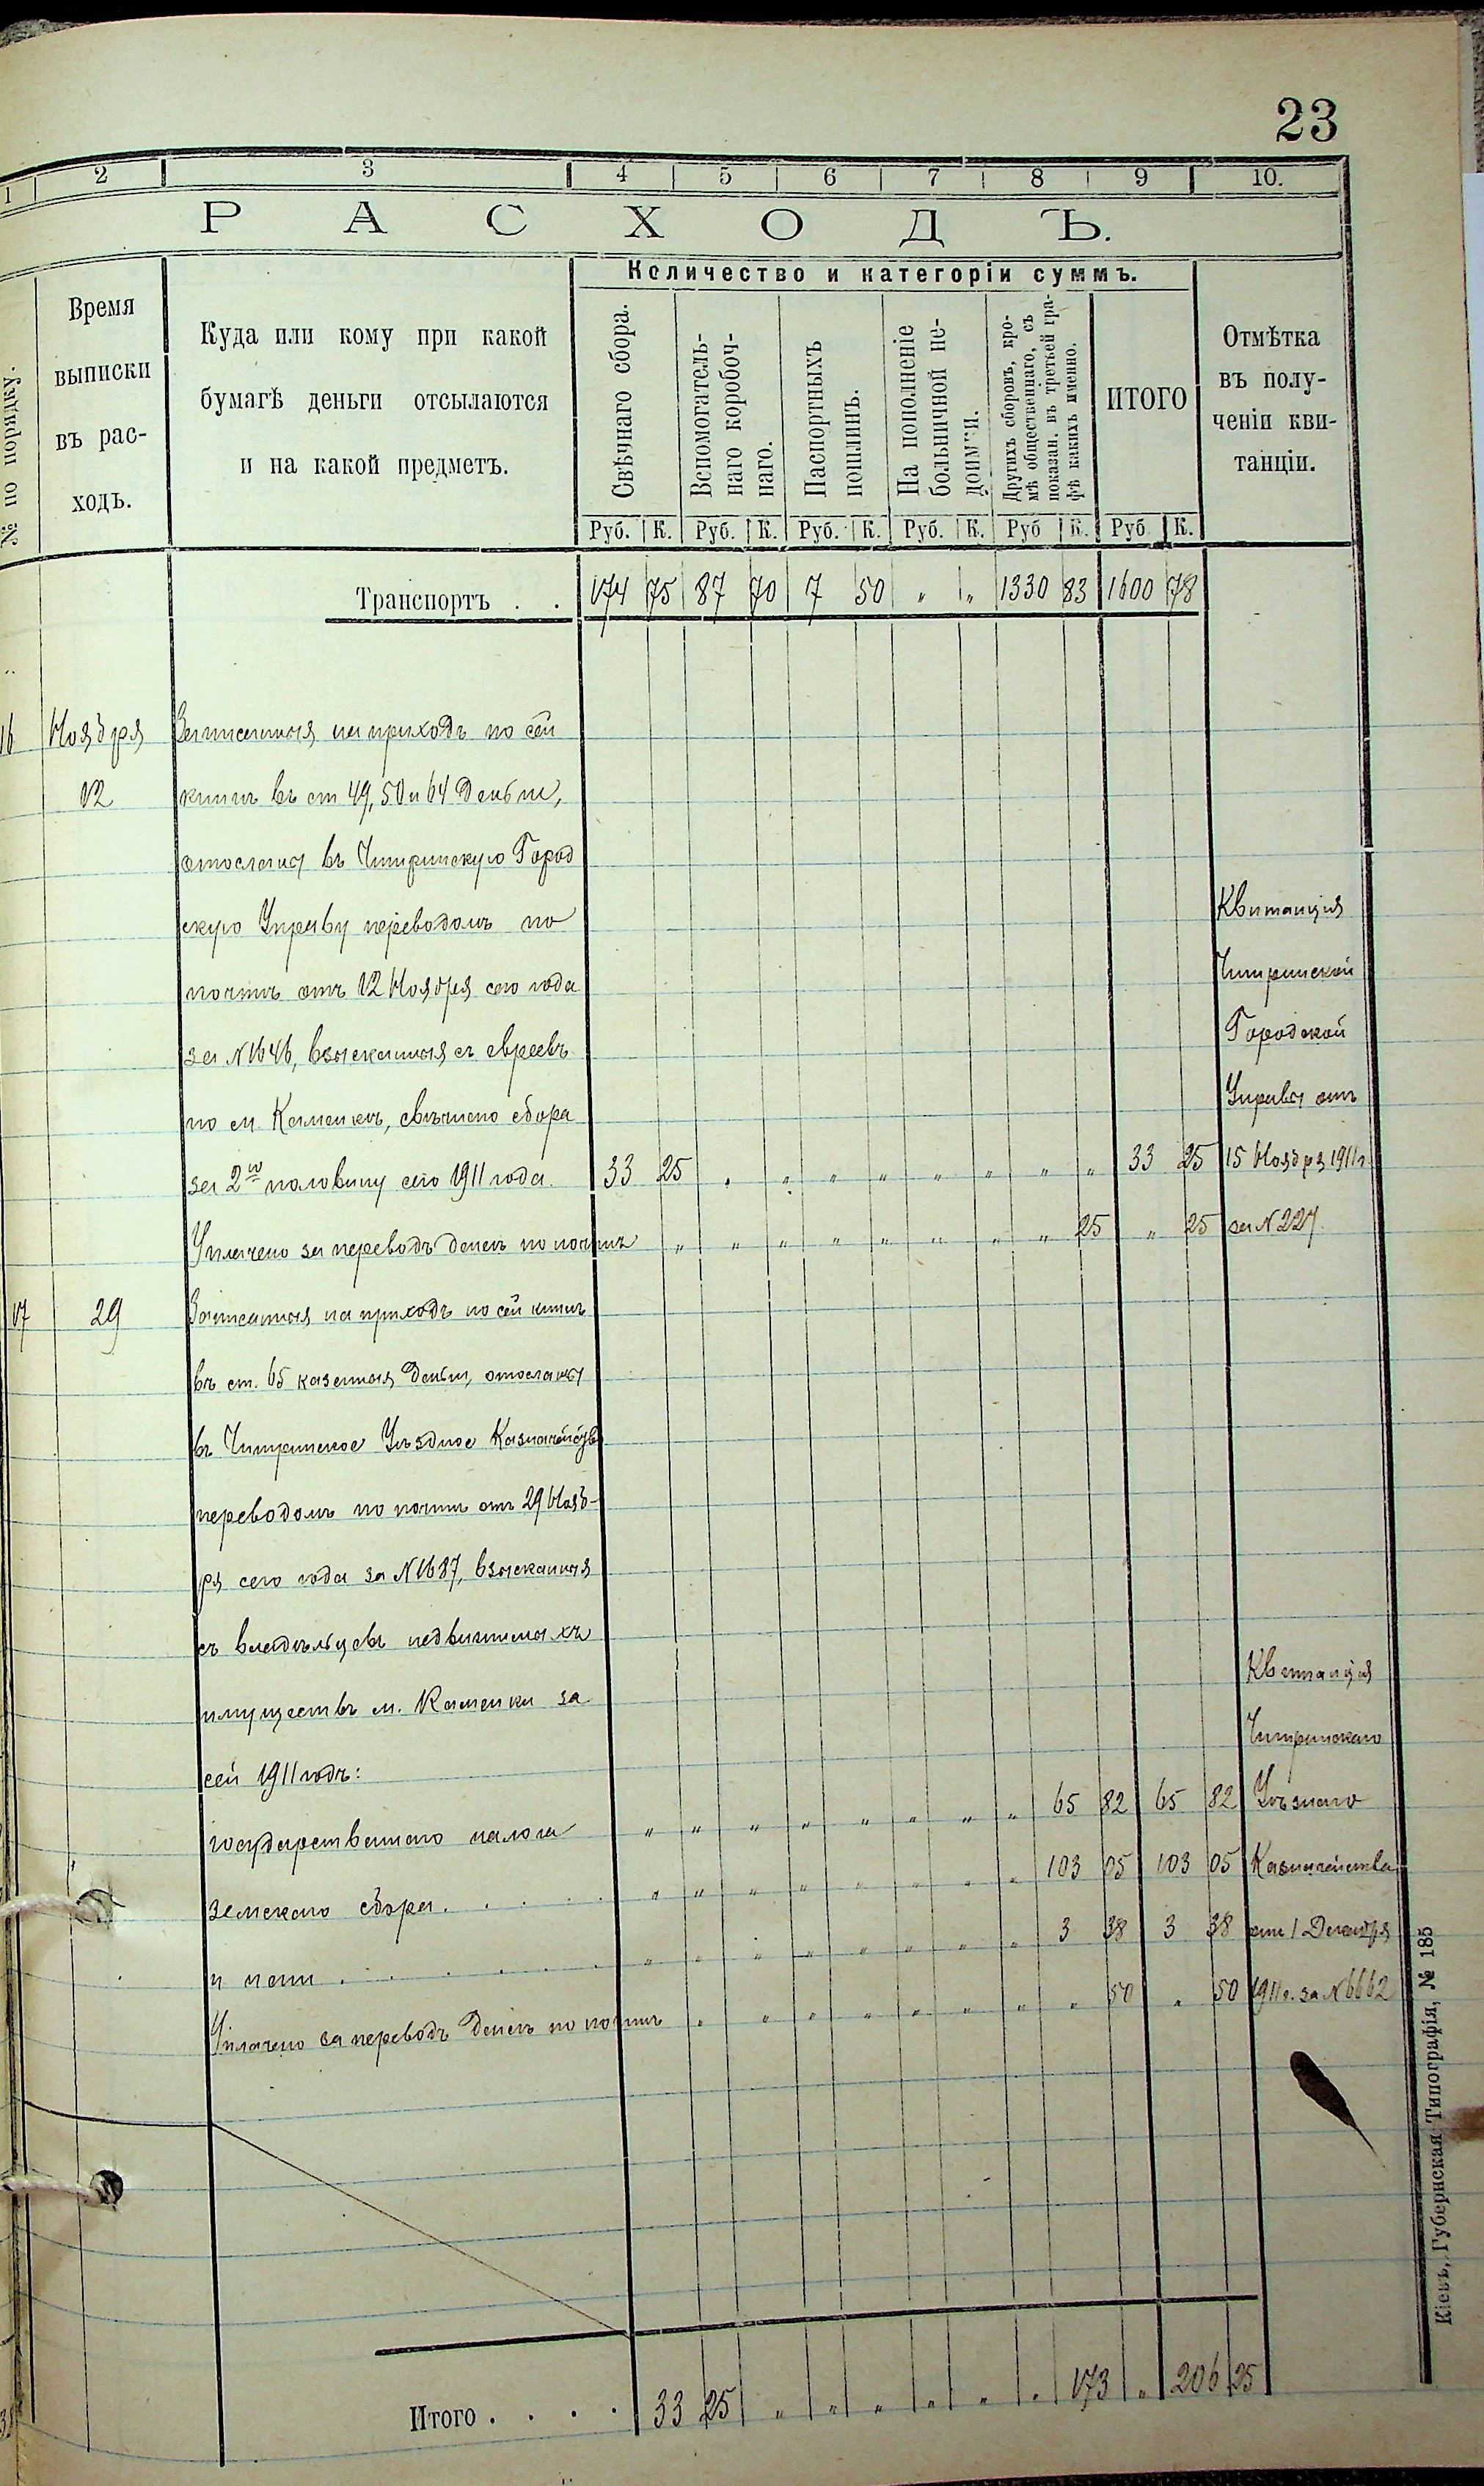 23
1 2 3 4 5 6 7 8 9 10.
РАСХОДЪ.
№ по порядку.
Время выписки въ рас-ходъ.
Куда или кому при какой
бумагѣ деньги отсылаются
и на какой предметъ.
Количество и категоріи суммъ.
Свѣчнаго сбора.
Вспомогатель-
наго коробоч-
наго.
Паспортныхъ
пошлинъ.
На пополненіе
больничной не-
доимки.
Другихъ сборовъ, кро-
мѣ общественнаго, съ
показан. въ третьей гра-
фѣ какихъ именно.
ИТОГО
Отмѣтка
въ полу-
ченіи кви-
танціи.
Руб. К. Руб. К. Руб. К. Руб. К. Руб К. Руб К.
Транспортъ . . 174 75 87 70 7 50 " " 1330 83 1600 78
16 Ноября Записанныя на приходъ по сей
12 книгѣ въ ст 49, 50 и 64 деньги,
отосланы въ Чигиринскую Город
скую Управу переводомъ по Квитанція
почтѣ отъ 12 Ноября сего года Чигиринской
за № 1646, взысканныя съ евреевъ Городской
по м. Каменкѣ, свѣчнаго сбора Управы отъ
за 2ю половину сего 1911 года. 33 25 " " " " " " " " 33 25 15 Ноября 1911 г.
Уплачено за переводъ денегъ по почтѣ " " " " " " " " 25 " 25 за № 227.
17 29 Записанныя на приходъ по сей книгѣ
въ ст. 65 казенныя деньги, отосланы
въ Чигиринское Уѣздное Казначейство
переводомъ по почтѣ отъ 29 Нояб-
ря сего года за № 1687, взысканныя
съ владѣльцевъ недвижимыхъ
имуществъ м. Каменки за Квитанція
сей 1911 годъ: Чигиринскаго
государственнаго налога " " " " " " " " 65 82 65 82 Уѣзднаго
земскаго сбора . . . . " " " " " " " " 103 05 103 05 Казначейства
и пени . . . . . . . " " " " " " " " 3 38 3 38 отъ 1 Декабря
Уплачено за переводъ денегъ по почтѣ " " " " " " " " 50 " 50 1911 г. за № 6662
Итого . . . . 33 25 " " " " " " 173 " 206 25
Кіевъ, Губернская Типографія, № 185